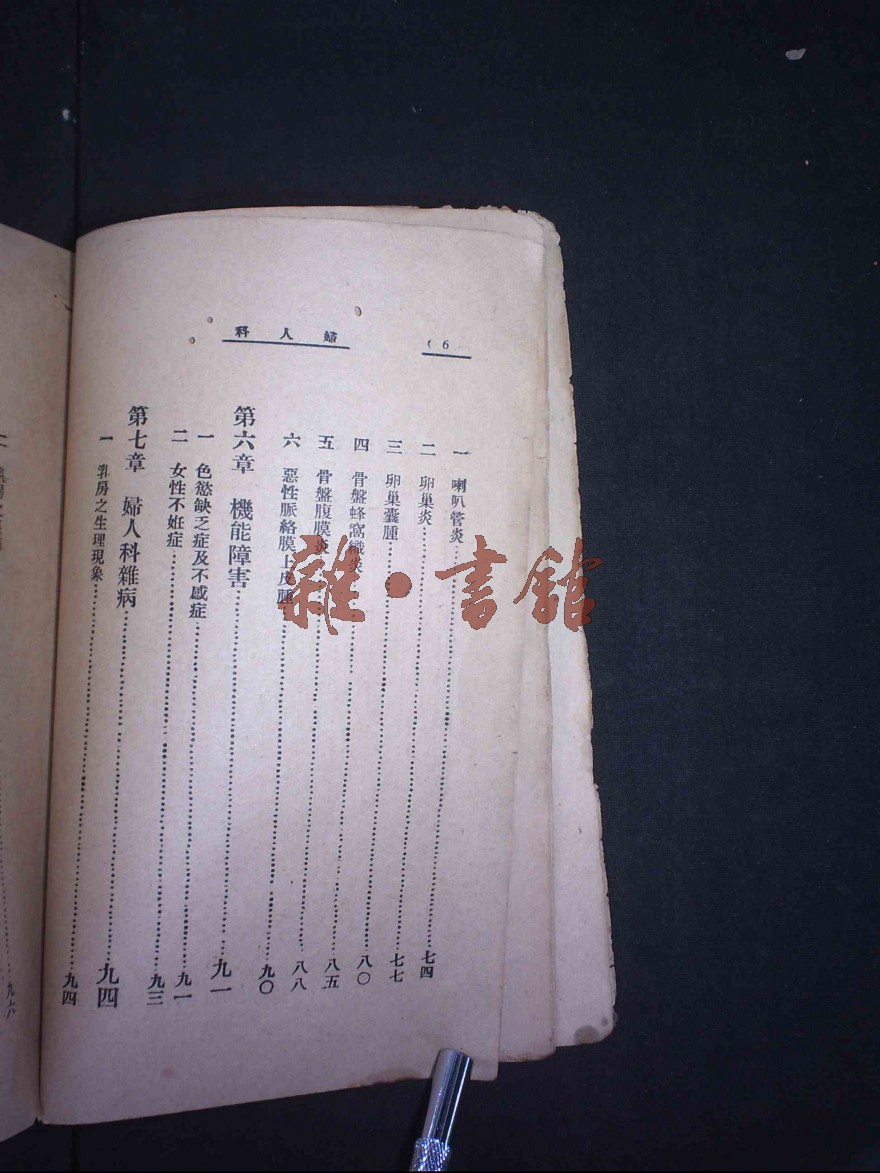 ( 6
婦人科
一 喇叭管炎……七四
二 卵巢炎……七七
三 卵巢囊腫……八〇
四 骨盤蜂窩織炎……八五
五 骨盤腹膜炎……八八
六 惡性脈絡膜上皮腫……九〇
第六章 機能障害……九一
一 色慾缺乏症及不感症……九一
二 女性不妊症……九三
第七章 婦人科雜病……九四
一 乳房之生理現象……九四
九六
雜·書館